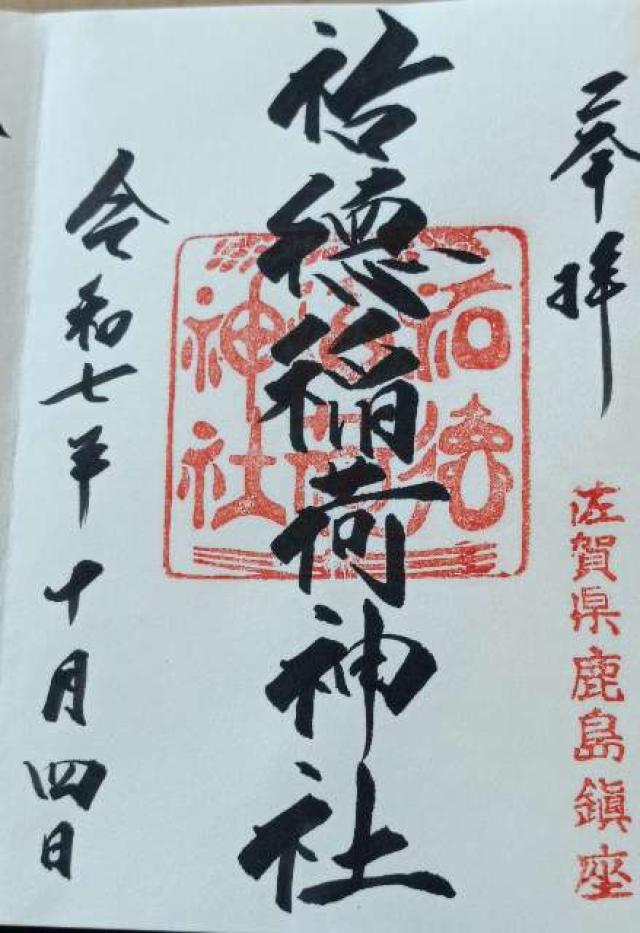 奉拝
佐賀県鹿島鎮座
祐徳稲荷神社
祐徳
稲荷
神社
令和七年十月四日